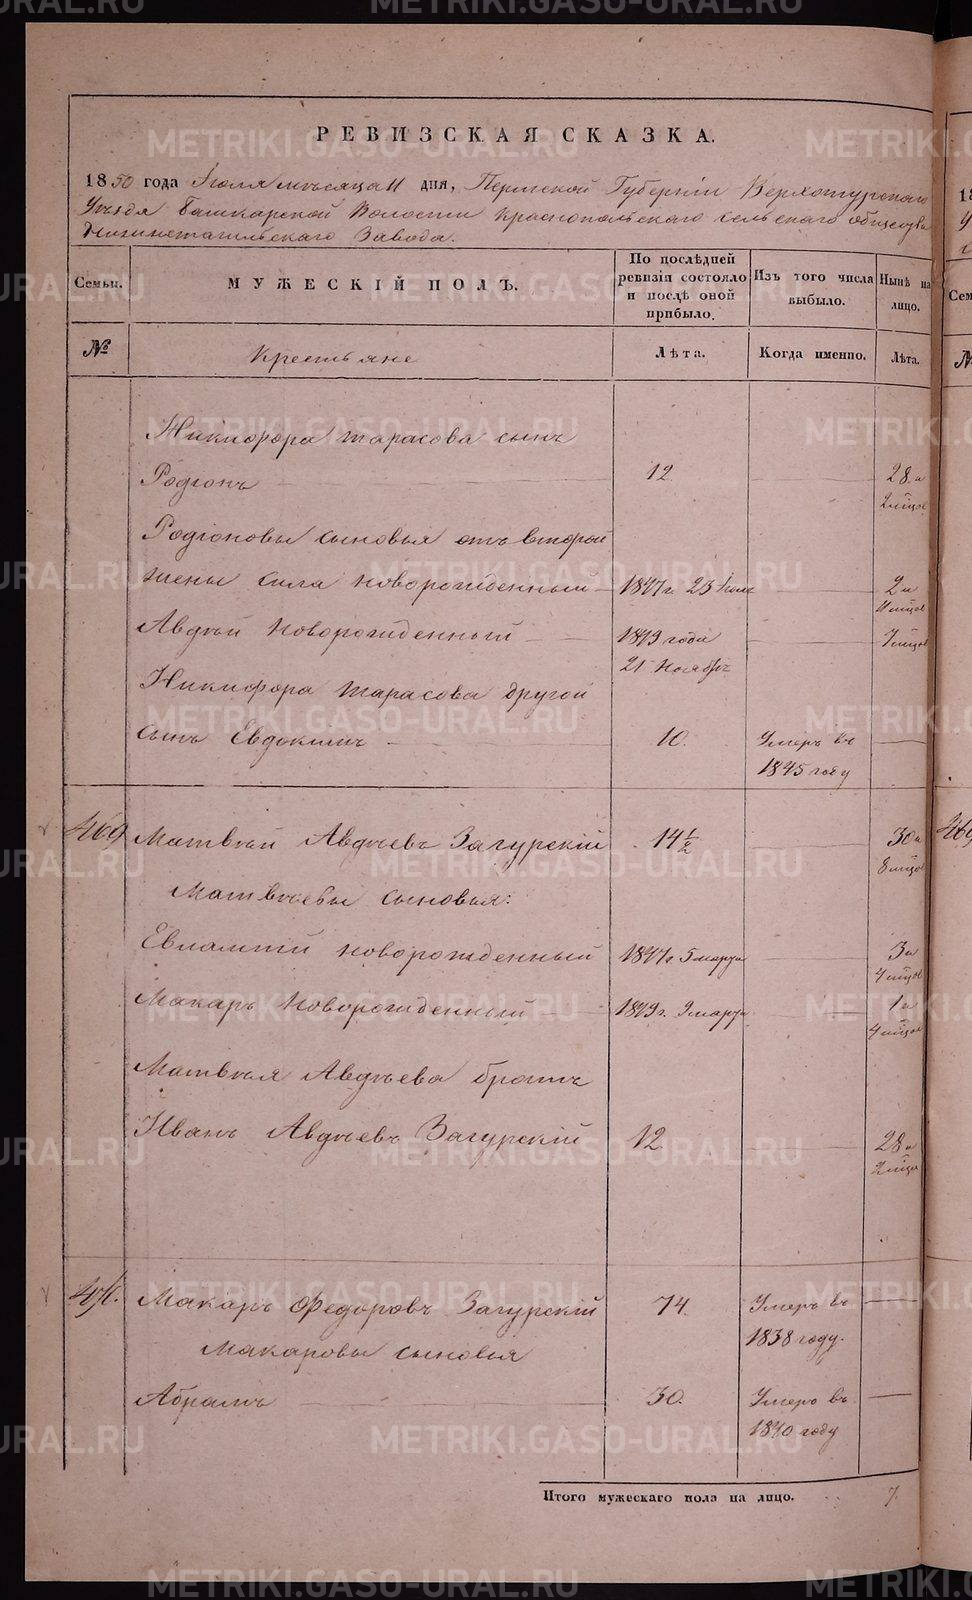 РЕВИЗСКАЯ СКАЗКА.
1850 года Іюля мѣсяца 11 дня, Пермской Губерніи Верхотурскаго
Уѣзда Башкарской Волости Краснопольскаго сельскаго общества
Нижнетагильскаго Завода.
Семьи.
МУЖЕСКІЙ ПОЛЪ.
По послѣдней ревизіи состояло и послѣ оной прибыло.
Изъ того числа выбыло.
Нынѣ на лицо.
№
Крестьяне
Лѣта.
Когда именно.
Лѣта.
Никифора Тарасова сынъ
Родіонъ 12 28 и
2 мѣцов
Родіоновы сыновья отъ второй
жены Сила новорожденный 1847 г. 23 2 и
11 мѣцов
Авдѣй новорожденный 1849 года 7 мѣцов
21 Ноября
Никифора Тарасова другой
сынъ Евдокимъ 10. Умеръ въ
1845 году
469 Матвѣй Авдѣевъ Загурскій 14 1/2 30 и
8 мѣцов
Матвѣевы сыновья:
Евлампій новорожденный 1847 г. 5 марта 3 и
4 мѣцов
Макаръ новорожденный 1849 г. 9 марта 1 и
4 мѣцов
Матвѣя Авдѣева братъ
Иванъ Авдѣевъ Загурскій 12 28 и
2 мѣцов
Макаръ Федоровъ Загурскій 74. Умеръ въ
1838 году.
Макаровы сыновья
Абрамъ 30. Умеръ въ
1840 году
Итого мужескаго пола на лицо. 7.
METRIKI.GASO-URAL.RU